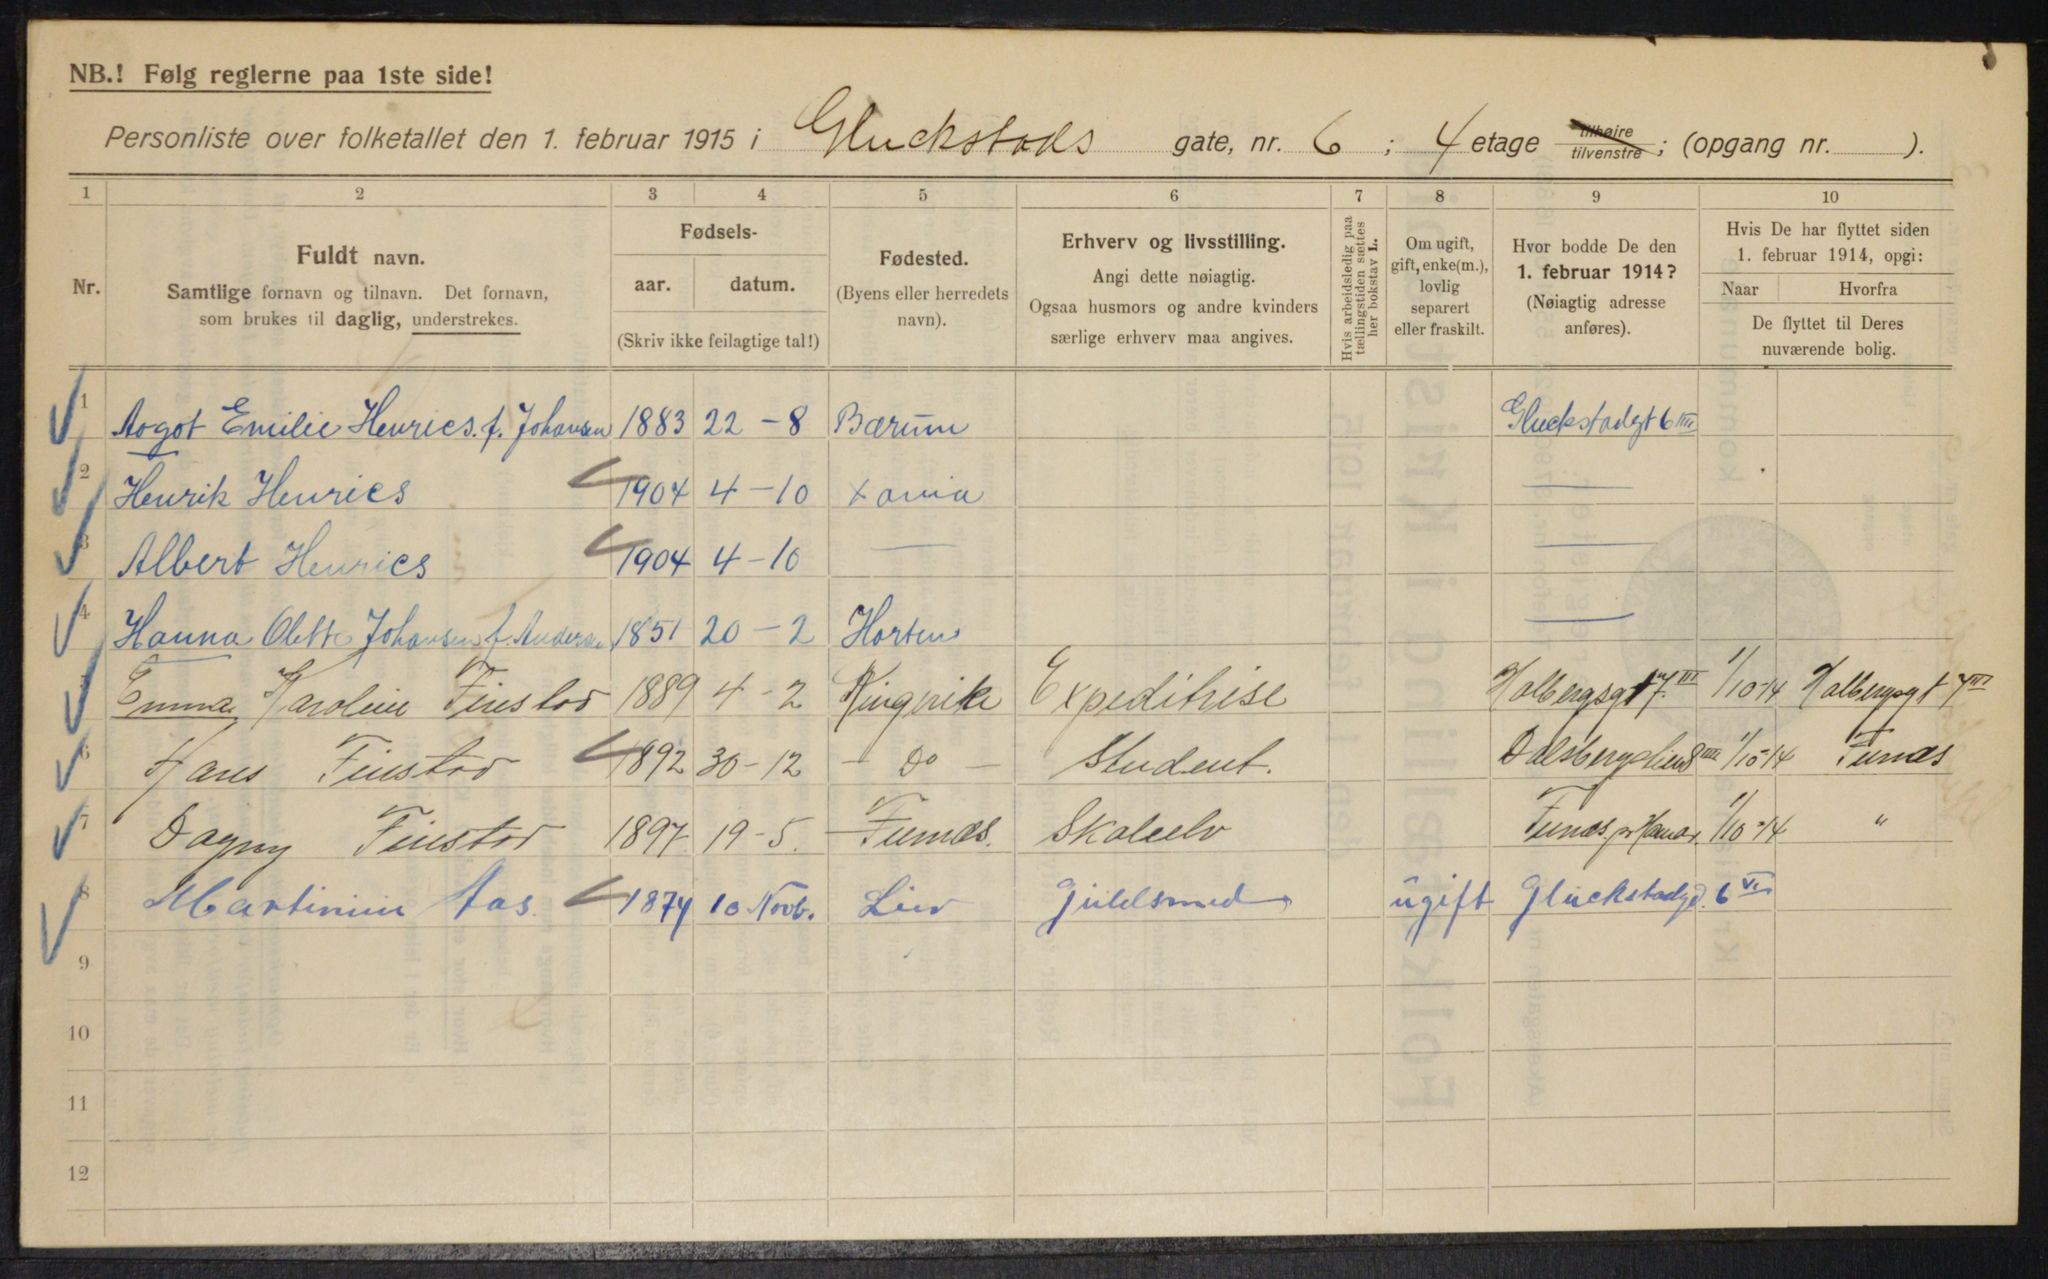 NB.! Følg reglerne paa 1ste side!
Personliste over folketallet den 1. februar 1915 i Gluckstads gate, nr. 6 ; 4 etage tilhøire tilvenstre ; (opgang nr. ).
1 2 3 4 5 6 7 8 9 10
Nr.
Fuldt navn.
Samtlige fornavn og tilnavn. Det fornavn,
som brukes til daglig, understrekes.
Fødsels-
aar. datum.
(Skriv ikke feilagtige tal!)
Fødested.
(Byens eller herredets
navn).
Erhverv og livsstilling.
Angi dette nøiagtig.
Ogsaa husmors og andre kvinders
særlige erhverv maa angives.
Hvis arbeidsledig paa
tællingstiden sættes
her bokstav L.
Om ugift,
gift, enke(m.),
lovlig
separert
eller fraskilt.
Hvor bodde De den
1. februar 1914?
(Nøiagtig adresse
anføres).
Hvis De har flyttet siden
1. februar 1914, opgi:
Naar Hvorfra
De flyttet til Deres
nuværende bolig.
1 Aagot Emilie Henrics. f. Johansen 1883 22 - 8 Bærum Gluckstadgt 6 IIII
2 Henrik Henrics 1904 4 - 10 Xania —
3 Albert Henrics 1904 4 - 10 — —
4 Hanna Olette Johansen f. Anderse 1851 20 - 2 Horten —
5 Emma Karoline Finstad 1889 4 - 2 Ringerike Expeditrise Holbergsgt 7 III 1/10-14 Holbergsgt 7 III
6 Hans Finstad 1892 30 - 12 - Do - Student. 8 III 1/10-14 Furnes
7 Dagny Finstad 1897. 19 - 5. Furnes. Skoleelv Furnes pr Hamar. 1/10-14 "
8 Martinius Aas. 1874 10 Novb. Lier Guldsmed ugift Gluckstadgd. 6 VI
9
10
11
12